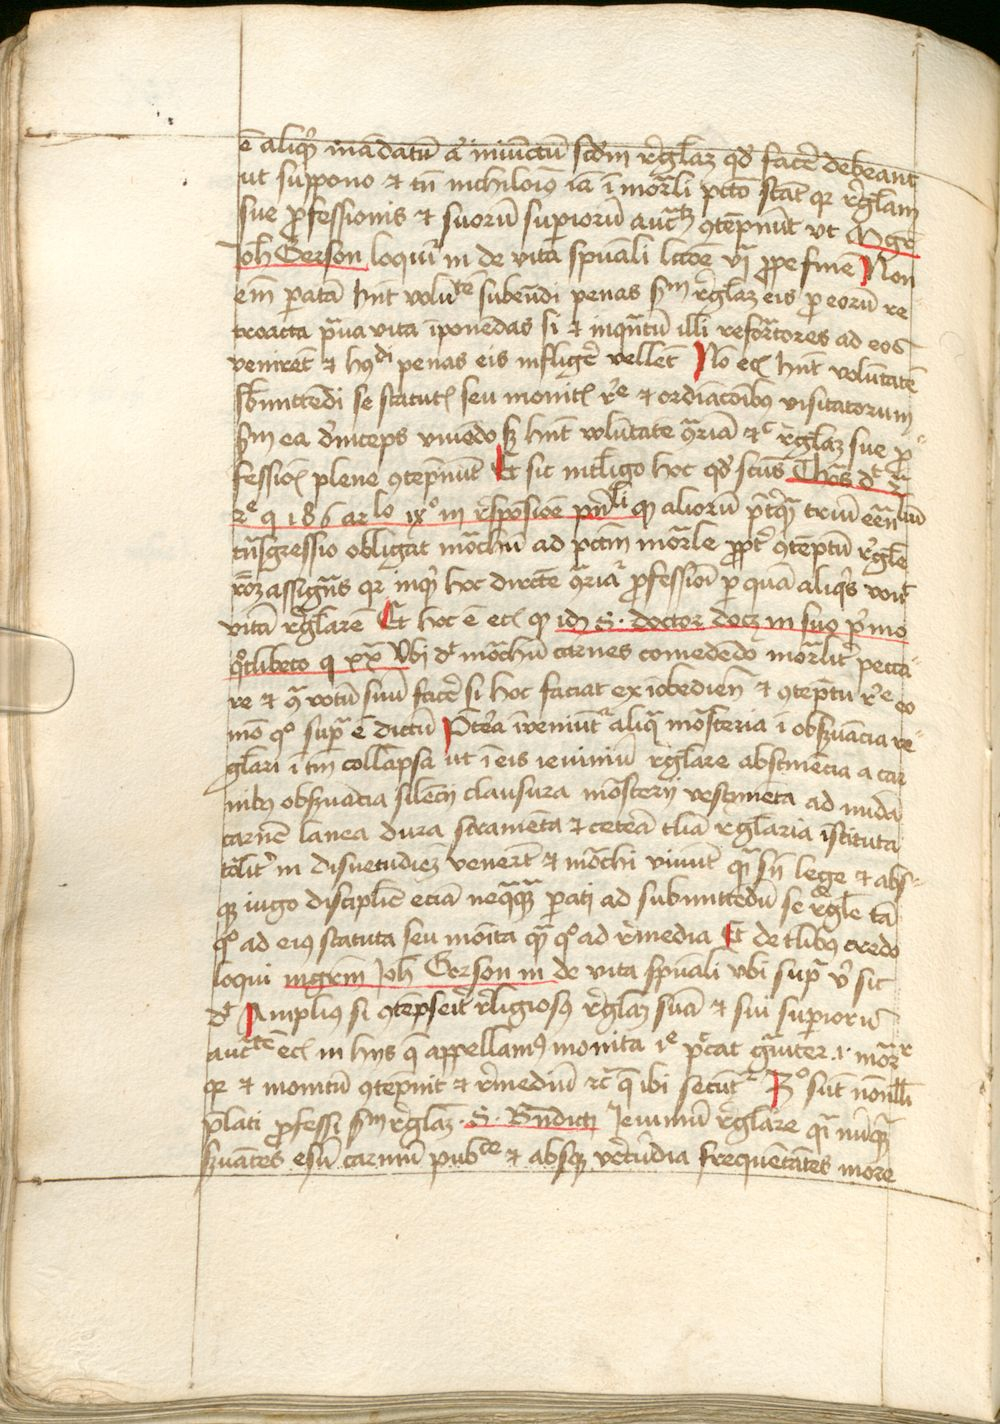 ē aliqꝰ mādatū aͨ iniūctū scďm r̄gl̄aꝫ qď facē debeant
ut suppono ⁊ tn̄ nichiloīꝰ iā ī mor̄li pctō stāt qꝛ r̄gl̄am
sue ꝓfessionis ⁊ suorū supiorū auctᵗᵉ ꝯtēpnūt ut Mgr̄
Joh̄ Gerson loquiᵗ in de vita spūali lcōe vj ꝓpe finē Non
em̄ patā hn̄t volūᵗᵉ subeūdi penas sᵐ r̄gl̄aꝫ eis ꝓ eorū re
troacta pͣua vita īponēdas si ⁊ inqͣntū illi refoͬtores ad eos
veniret̄ ⁊ hꝰᵈⁱ penas eis infligē vellet̄ Nō ecͥ hn̄t volūtatē
sb̄mittēdi se statutͥ seu monitͥ rᵉ ⁊ ordīacōibꝰ visitatorum
sᵐ ea dīnceps viuēdo sꝫ hn̄t volūtatē ꝯͬriā ⁊ᶜ r̄gl̄aꝫ sue ꝓ
fessioͥ plene ꝯtēpnūt Et sic intl̄ligo hoc qď scūs Thōs dᵗ
rᵉ q 186 arˡᵒ ixᵒ in r̄sposiōe pn̄ˡⁱ qꝫ aliorū pͭtqͣ triū
tn̄sgressio obligat mōchū ad pctm̄ mor̄le ꝓpt̄ ꝯtēptū r̄gl̄e
rōꝫ assigͣns qꝛ inqͥ hoc directe ꝯͬriaͬ ꝓfessiōi ꝑ quā aliqͥs vouͥᵗ
vitā r̄gl̄arē Et hoc ē ecͥ qꝫ idꝫ S. doctor docꝫ in suo pͥmo
qͦtlibeto q xx vbi dᵗ mōchū carnes comededo mor̄litͬ pecca
re ⁊ ꝯͣ votū suū facē si hoc faciat ex iōbedien̄ ⁊ ꝯtēptu rᵉ eo
mō qͦ supͣ ē dictū Pͭea īveniūtᷣ aliqͣ mōsteria ī obsꝫuācia re
gl̄ari ī tm̄ collapsa ut ī eis ieiuniū r̄gl̄are abstinēcia a car
nibꝰ obsꝫuācia silēcij clausura mōsterij vestimēta ad nudā
carnē lanea dura stramēta ⁊ ceteā tl̄ia r̄gl̄aria īstituta
tōlitͬ in disuetudīeꝫ venerūt ⁊ mōchi viuūt qͣ sn̄ lege ⁊ abs
qꝫ iugo discipl̄ē eciā neqͣqͣ pati ad submittēdū se r̄gl̄e tā
qͦ ad eiꝰ statuta seu moīta qͣ qͦ ad r̄media Et de tl̄ibꝰ credo
loqui mgrm̄ Joh̄ Gerson in de vita spūali vbi supͣ vͬ sic
dᵗ Ampliꝰ si ꝯtēpseritͬ r̄ligiosꝰ r̄gl̄aꝫ suā ⁊ sui supiorū
auctᵗᵉ ecͥ in hiis q̄ appellamꝰ monita īᵉ pͨcat gͣuiter .i. morͬ
qꝛ ⁊ monitū ꝯtēpnit ⁊ r̄mediū ⁊ᶜ q̄ ibi secūtᷣ 3ᵒ sūt nōnl̄li
pͬlati ꝓfessi sᵐ r̄gl̄aꝫ .S. Bn̄dicti Jeiuniū r̄gl̄are qͣ nūqͣ
sꝫuātes esū carniū pubᶜᵉ ⁊ absqꝫ v̄ecūdia frequētātes more